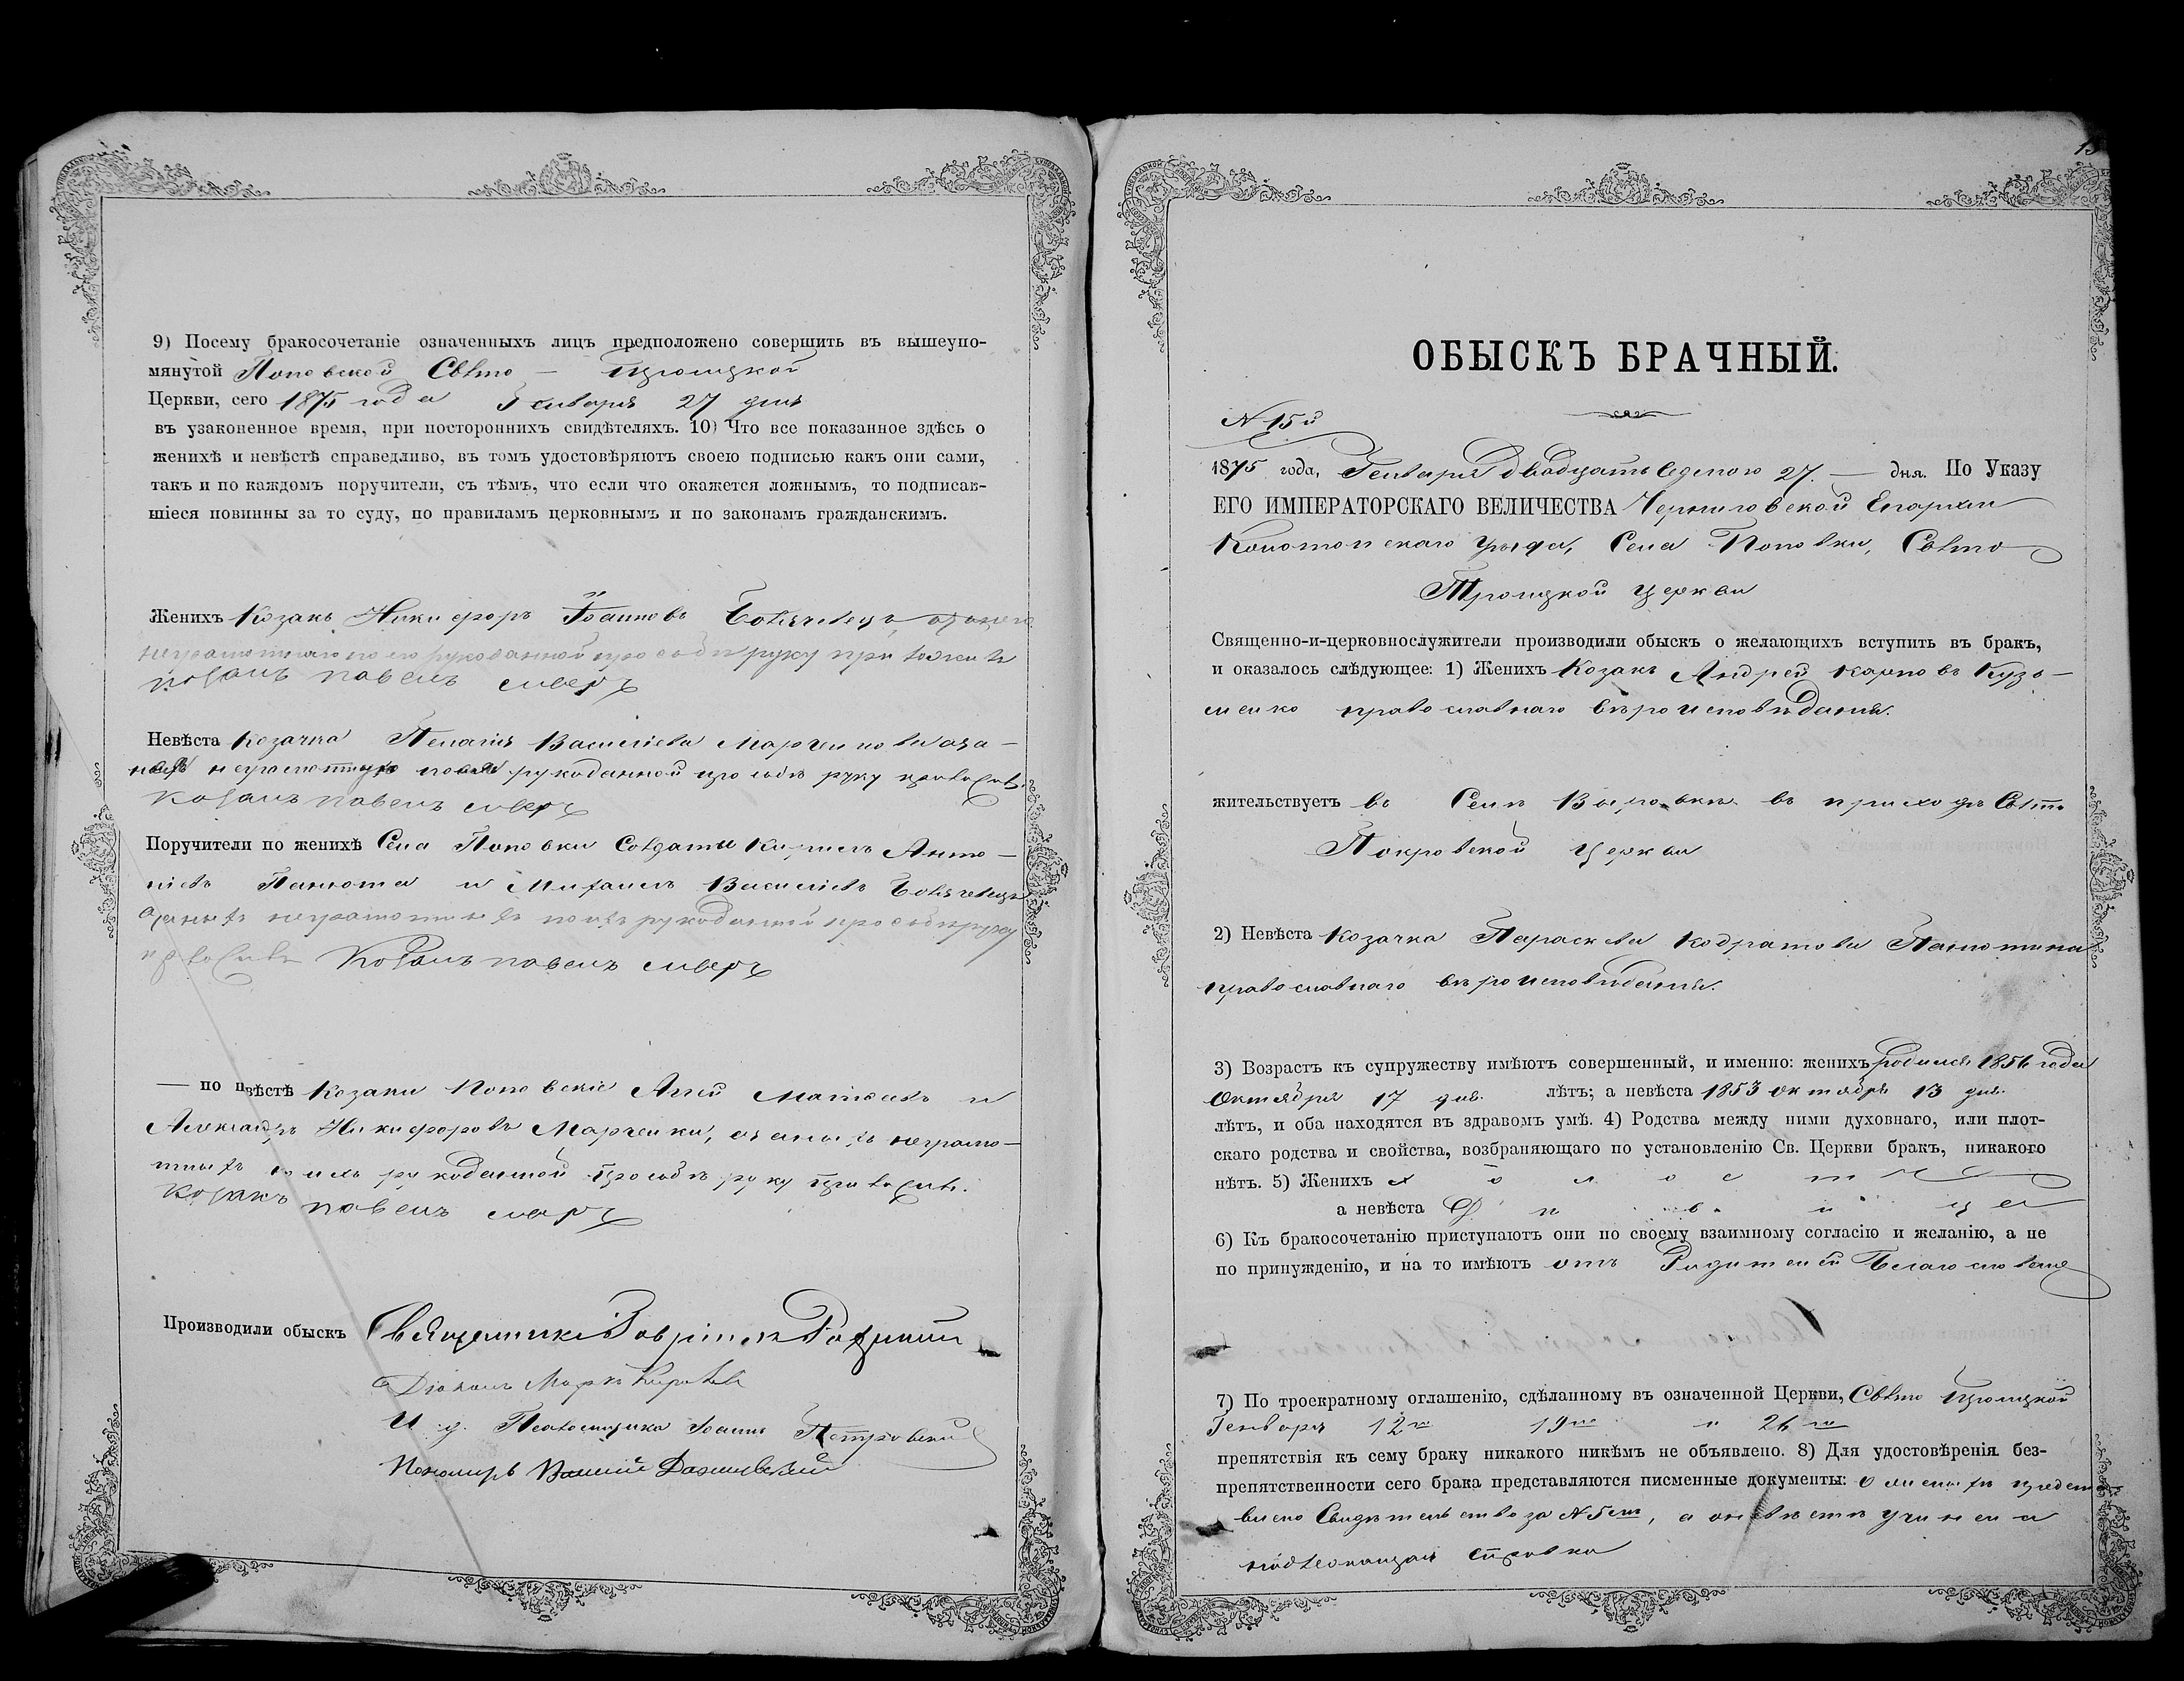 9) Посему бракосочетаніе означенныхъ лицъ предположено совершить въ вышеупо-
мянутой Поповской Свято — Троицкой
Церкви, сего 1875 года Января 27 дня
въ узаконенное время, при постороннихъ свидѣтеляхъ. 10) Что все показанное здѣсь о
женихѣ и невѣстѣ справедливо, въ томъ удостовѣряютъ своею подписью какъ они сами,
такъ и по каждомъ поручители, съ тѣмъ, что если что окажется ложнымъ, то подписав-
шіеся повинны за то суду, по правиламъ церковнымъ и по законамъ гражданскимъ.
Женихъ Козакъ Никифоръ Іоанновъ
неграмотнаго по его рукоданной прозбѣ руку приложилъ
козакъ павелъ
Невѣста Козачка Пелагія Василіева Марченкова а за
нея неграмотную по ея рукоданной прозбѣ руку приложилъ
козакъ павелъ
Поручители по женихѣ Села Поповки Солдаты Кирилъ Анто-
ніевъ Панюта и Михаилъ Василіевъ
а за нихъ неграмотныхъ по ихъ рукоданной прозбѣ руку
приложилъ Козакъ павелъ
— по нвѣстѣ Козаки Поповскіе Матвѣевъ и
Александръ Никифоровъ Марченки, а за нихъ неграмо-
тныхъ по ихъ рукоданной прозбѣ руку приложилъ
козакъ павелъ
Производили обыскъ Священникъ Гавріилъ
Діаконъ Маркъ
И. д. Псаломщика Іоаннъ Петровскій
Пономарь
15
ОБЫСКЪ БРАЧНЫЙ.
N 15й
1875 года, Генваря двадцать седмого 27. — дня. По Указу
ЕГО ИМПЕРАТОРСКАГО ВЕЛИЧЕСТВА Черниговской Епархіи
Конотопскаго уѣзда, Села Поповки, Свято
Троицкой церкви
Священно-и-церковнослужители производили обыскъ о желающихъ вступить въ бракъ,
и оказалось слѣдующее: 1) Женихъ Козакъ Андрей Карповъ Кузь-
менко православнаго вѣроисповѣданія.
жительствуетъ въ Селѣ Выровкѣ въ приходѣ Свято
Покровской церкви
2) Невѣста Козачка Параскева Кодратова Панютина
православнаго вѣроисповѣданія.
3) Возрастъ къ супружеству имѣютъ совершенный, и именно: женихъ родился 1856 года
Октября 17 дня. лѣтъ; а невѣста 1853 октября 13 дня.
лѣтъ, и оба находятся въ здравомъ умѣ. 4) Родства между ними духовнаго, или плот-
скаго родства и свойства, возбраняющаго по установленію Св. Церкви бракъ, никакого
нѣтъ. 5) Женихъ х о л о с т
а невѣста Д ѣ в и ц а
6) Къ бракосочетанію приступаютъ они по своему взаимному согласію и желанію, а не
по принужденію, и на то имѣютъ отъ Родителей Благословеніе
7) По троекратному оглашенію, сдѣланному въ означенной Церкви, Свято Троицкой
Генваря 12го 19го и 26го
препятствія къ сему браку никакого никѣмъ не объявлено. 8) Для удостовѣренія без-
препятственности сего брака представляются писменные документы: о женихѣ предста
влено Свидѣтельство за N 5мъ, а о невѣстѣ учинена
надлежащая справка